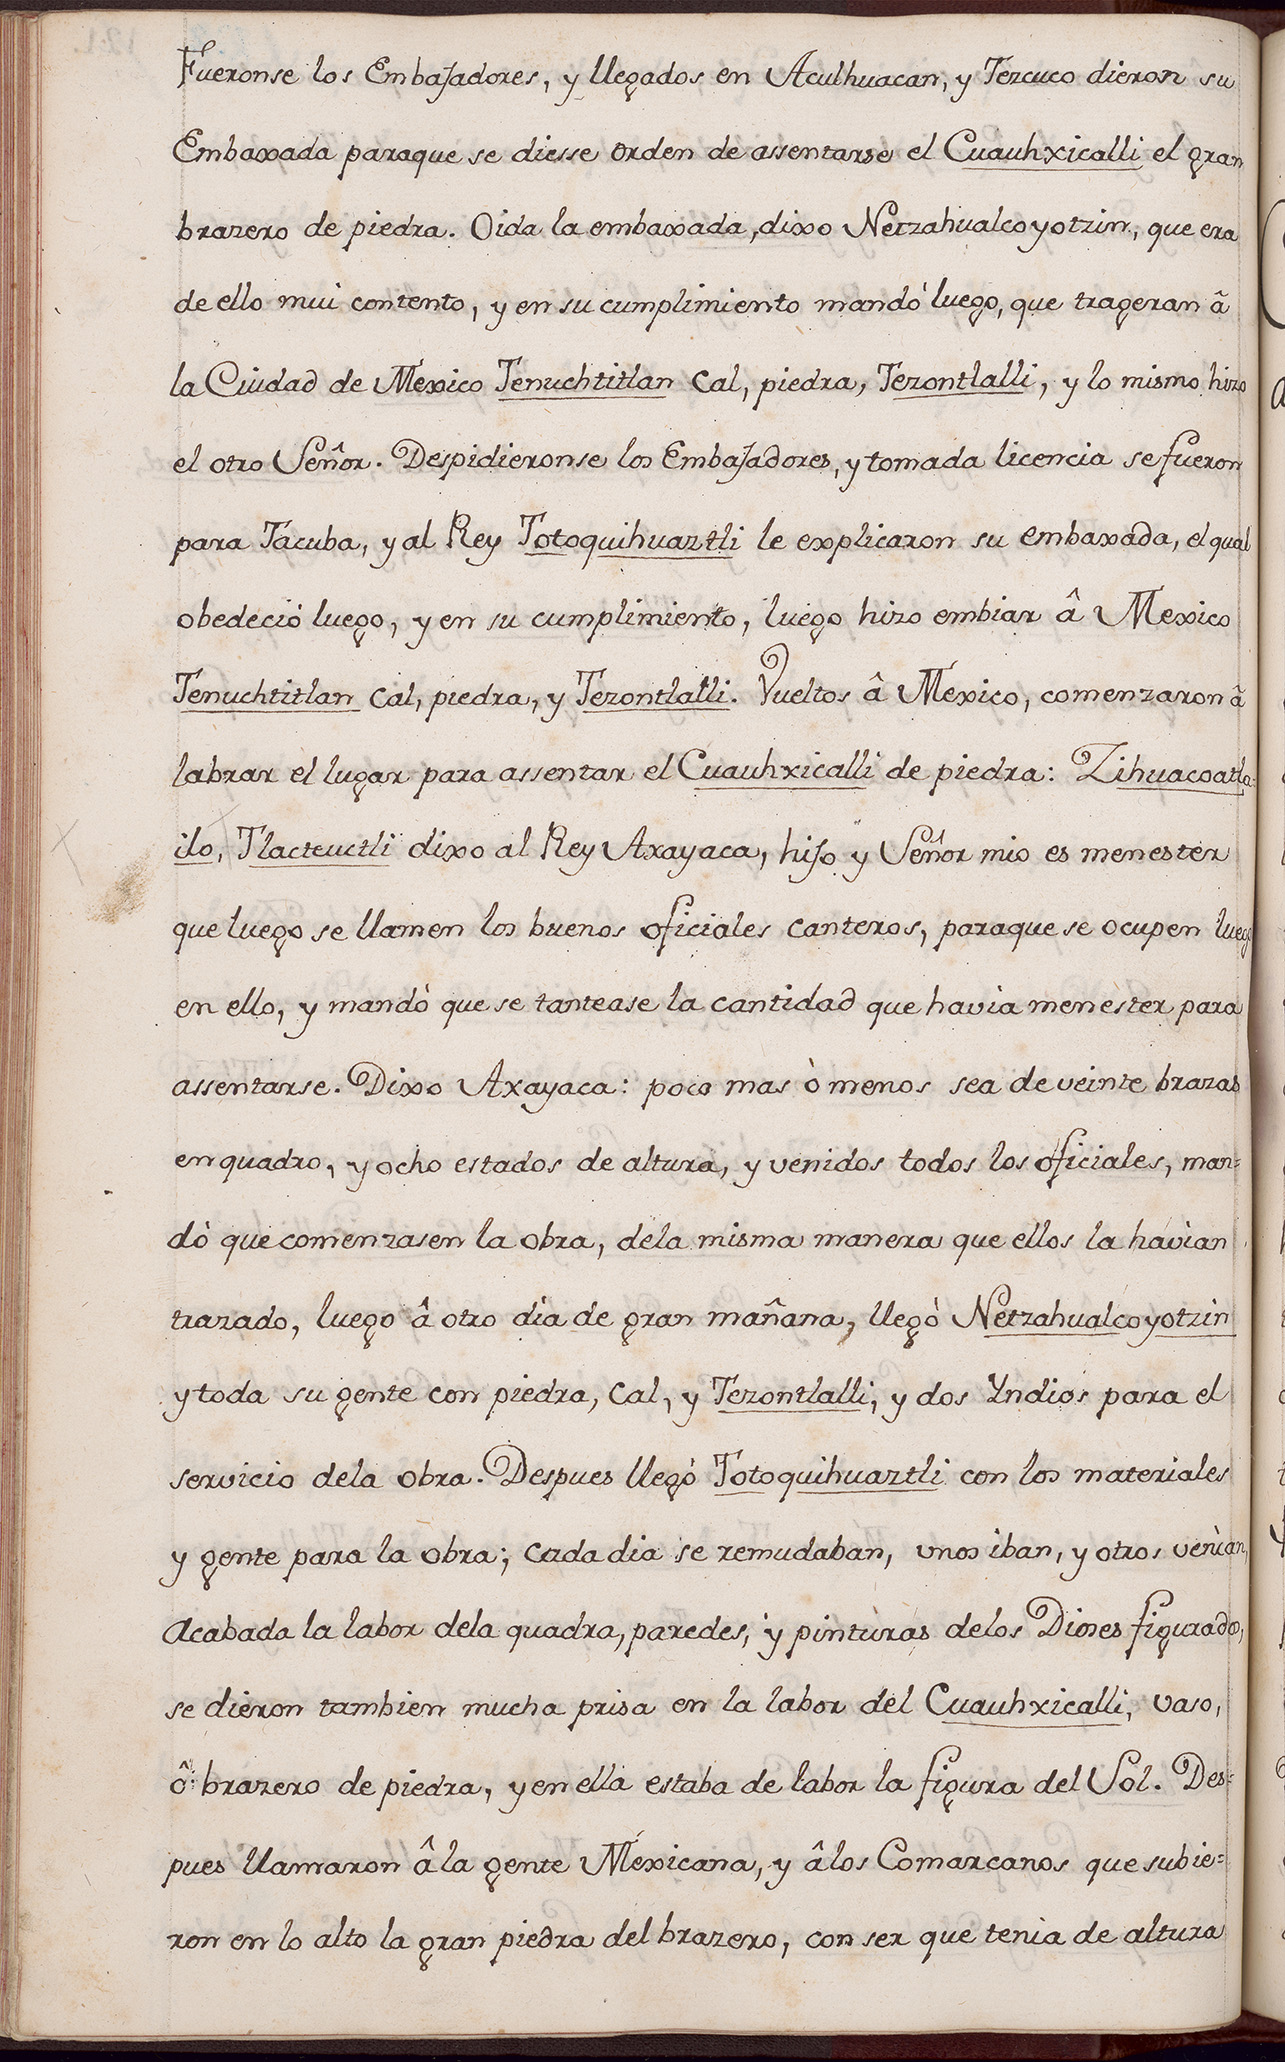 Fueronse los Embajadores, y llegados en Aculhuacan, y Tezcuco dieron su
Embaxada paraque se diesse orden de assentarse el Cuauhxicalli el gran
brazero de piedra. Oida la embaxada, dixo Netzahualcoyotzin, que era
de ello mui contento, y en su cumplimiento mandò luego, que trageran â
la Ciudad de Mexico Tenuchtitlan Cal, piedra, Tezontlalli, y lo mismo hizo
el otro Señor. Despidieronse los Embajadores, y tomada licencia se fueron
para Tacuba, y al Rey Totoquihuaztli le explicaron su embaxada, el qual
obedeciò luego, y en su cumplimiento, luego hizo embiar â Mexico
Tenuchtitlan Cal, piedra, y Tezontlalli. Vueltos â Mexico, comenzaron â
labrar el lugar para assentar el Cuauhxicalli de piedra: Zihuacoatla=
ilo, Tlacteuctli dixo al Rey Axayaca, hijo y Señor mio es menester
que luego se llamen los buenos oficiales canteros, paraque se ocupen luego
en ello, y mandò que se tantease la cantidad que havia menester para
assentarse. Dixo Axayaca: poco mas ò menos sea de veinte brazas
en quadro, y ocho estados de altura, y venidos todos los oficiales, man=
dò que comenzasen la obra, dela misma manera que ellos la havian
trazado, luego â otro dia de gran mañana, llegò Netzahualcoyotzin
y toda su gente con piedra, Cal, y Tezontlalli, y dos Yndios para el
servicio dela obra. Despues llegò Totoquihuaztli con los materiales
y gente para la obra; cada dia se remudaban, unos iban, y otros venian,
Acabada la labor dela quadra, paredes, y pinturas delos Dioses figurados,
se dieron tambien mucha prisa en la labor del Cuauhxicalli, vaso,
ô brazero de piedra, y en ella estaba de labor la figura del Sol. Des=
pues llamaron â la gente Mexicana, y â los Comarcanos que subie=
ron en lo alto la gran piedra del brazero, con ser que tenia de altura